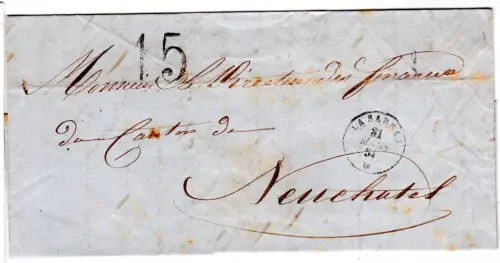 15
Monsieur le Directeur des finances
du Canton de
Neuchatel
LA SARRAZ
31
54